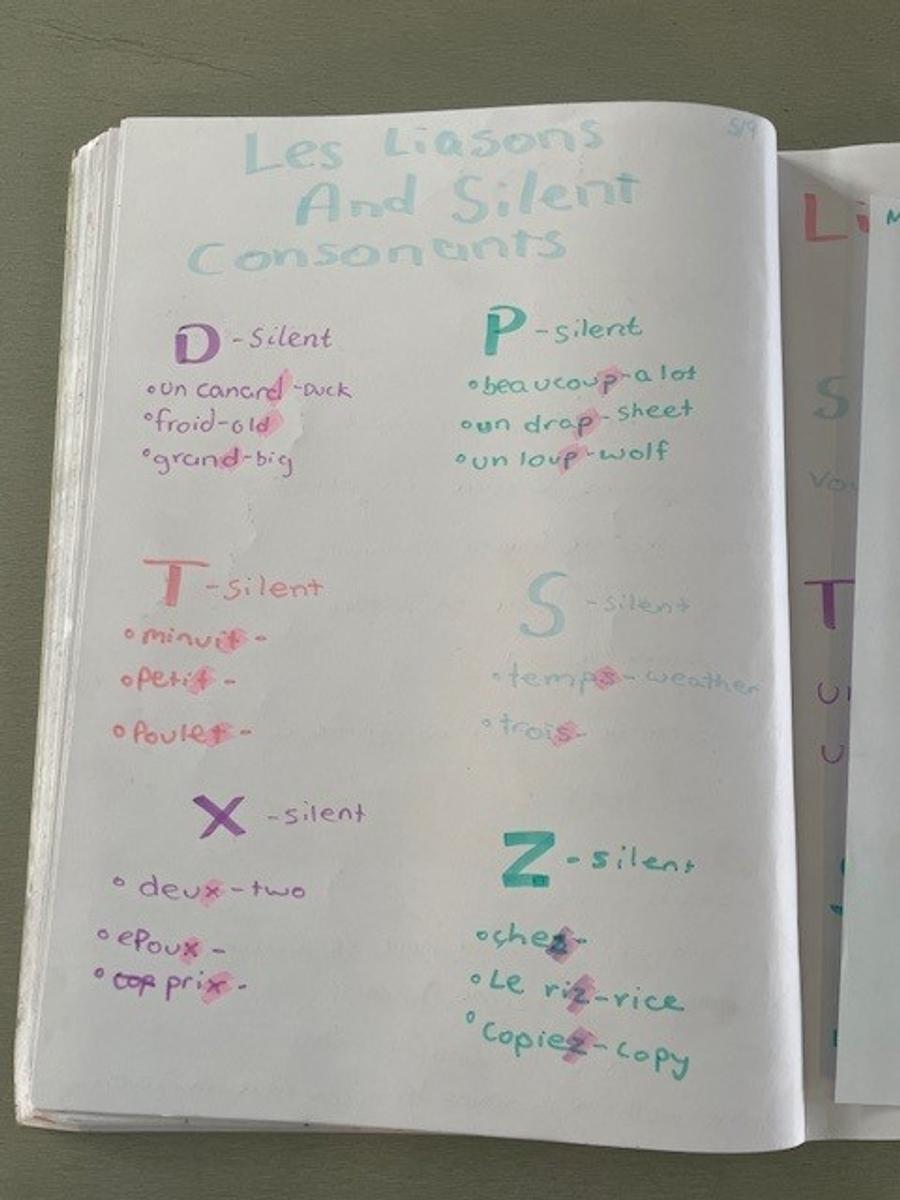 5/9
Les Liasons
And Silent
Consonants
D - Silent
• un canard - Duck
• froid - old
• grand - big
P - silent
• beaucoup - a lot
• un drap - sheet
• un loup - wolf
T - silent
• minuit -
• Petit -
• Poulet -
S - silent
• temps - weather
• trois -
X - silent
• deux - two
• epoux -
• prix -
Z - silent
• chez -
• Le riz - rice
• Copiez - copy
Li
S
vou
T
U
U